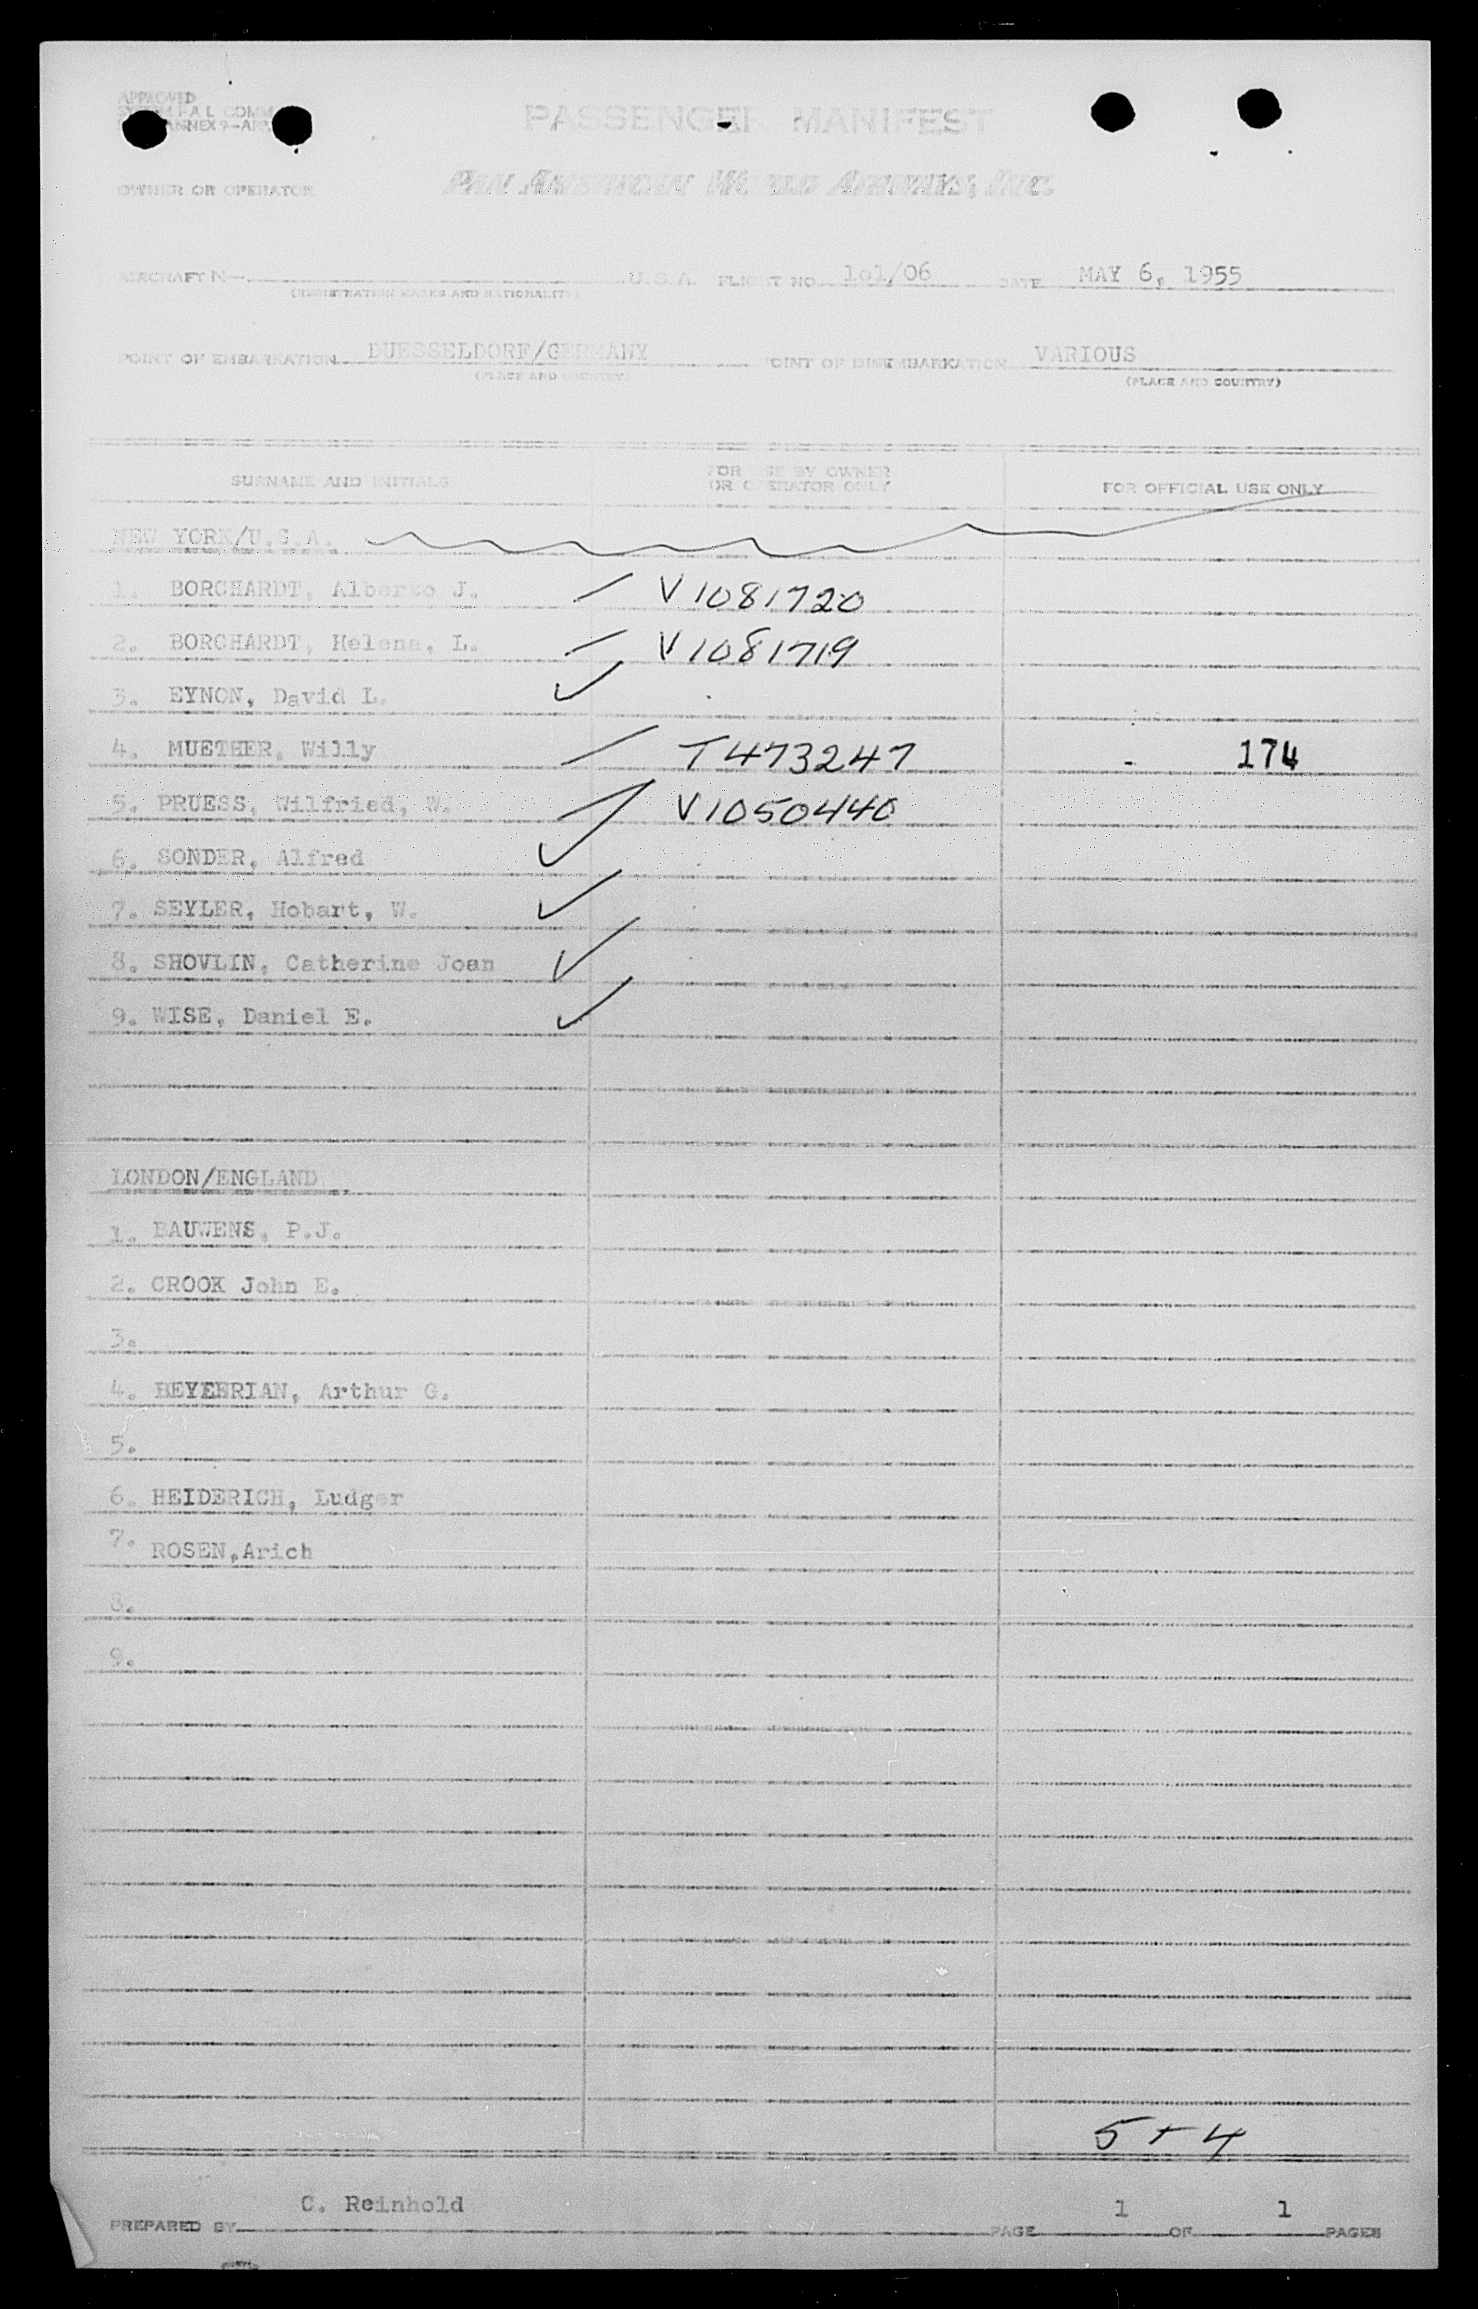 APPROVED
COMM
ANNEX 9-APP.
PASSENGER MANIFEST
OWNER OR OPERATOR PAN AMERICAN WORLD AIRWAYS, INC.
AIRCRAFT N- U.S.A. FLIGHT NO. 1o1/06 DATE MAY 6, 1955
(REGISTRATION MARKS AND NATIONALITY)
POINT OF EMBARKATION DUESSELDORF/GERMANY POINT OF DISEMBARKATION VARIOUS
(PLACE AND COUNTRY) (PLACE AND COUNTRY)
SURNAME AND INITIALS FOR USE BY OWNER OR OPERATOR ONLY FOR OFFICIAL USE ONLY
NEW YORK/U.S.A.
1. BORCHARDT, Alberto J. V1081720
2. BORCHARDT, Helena, L. V1081719
3. EYNON, David L.
4. MUETHER, Willy T473247 - 174
5. PRUESS, Wilfried, W. V1050440
6. SONDER, Alfred
7. SEYLER, Hobart, W.
8. SHOVLIN, Catherine Joan
9. WISE, Daniel E.
LONDON/ENGLAND
1. BAUWENS, P.J.
2. CROOK John E.
3.
4. Arthur G.
5.
6. HEIDERICH, Ludger
7. ROSEN,Arich
8.
9.
5 + 4
C. Reinhold
PREPARED BY PAGE 1 OF 1 PAGES